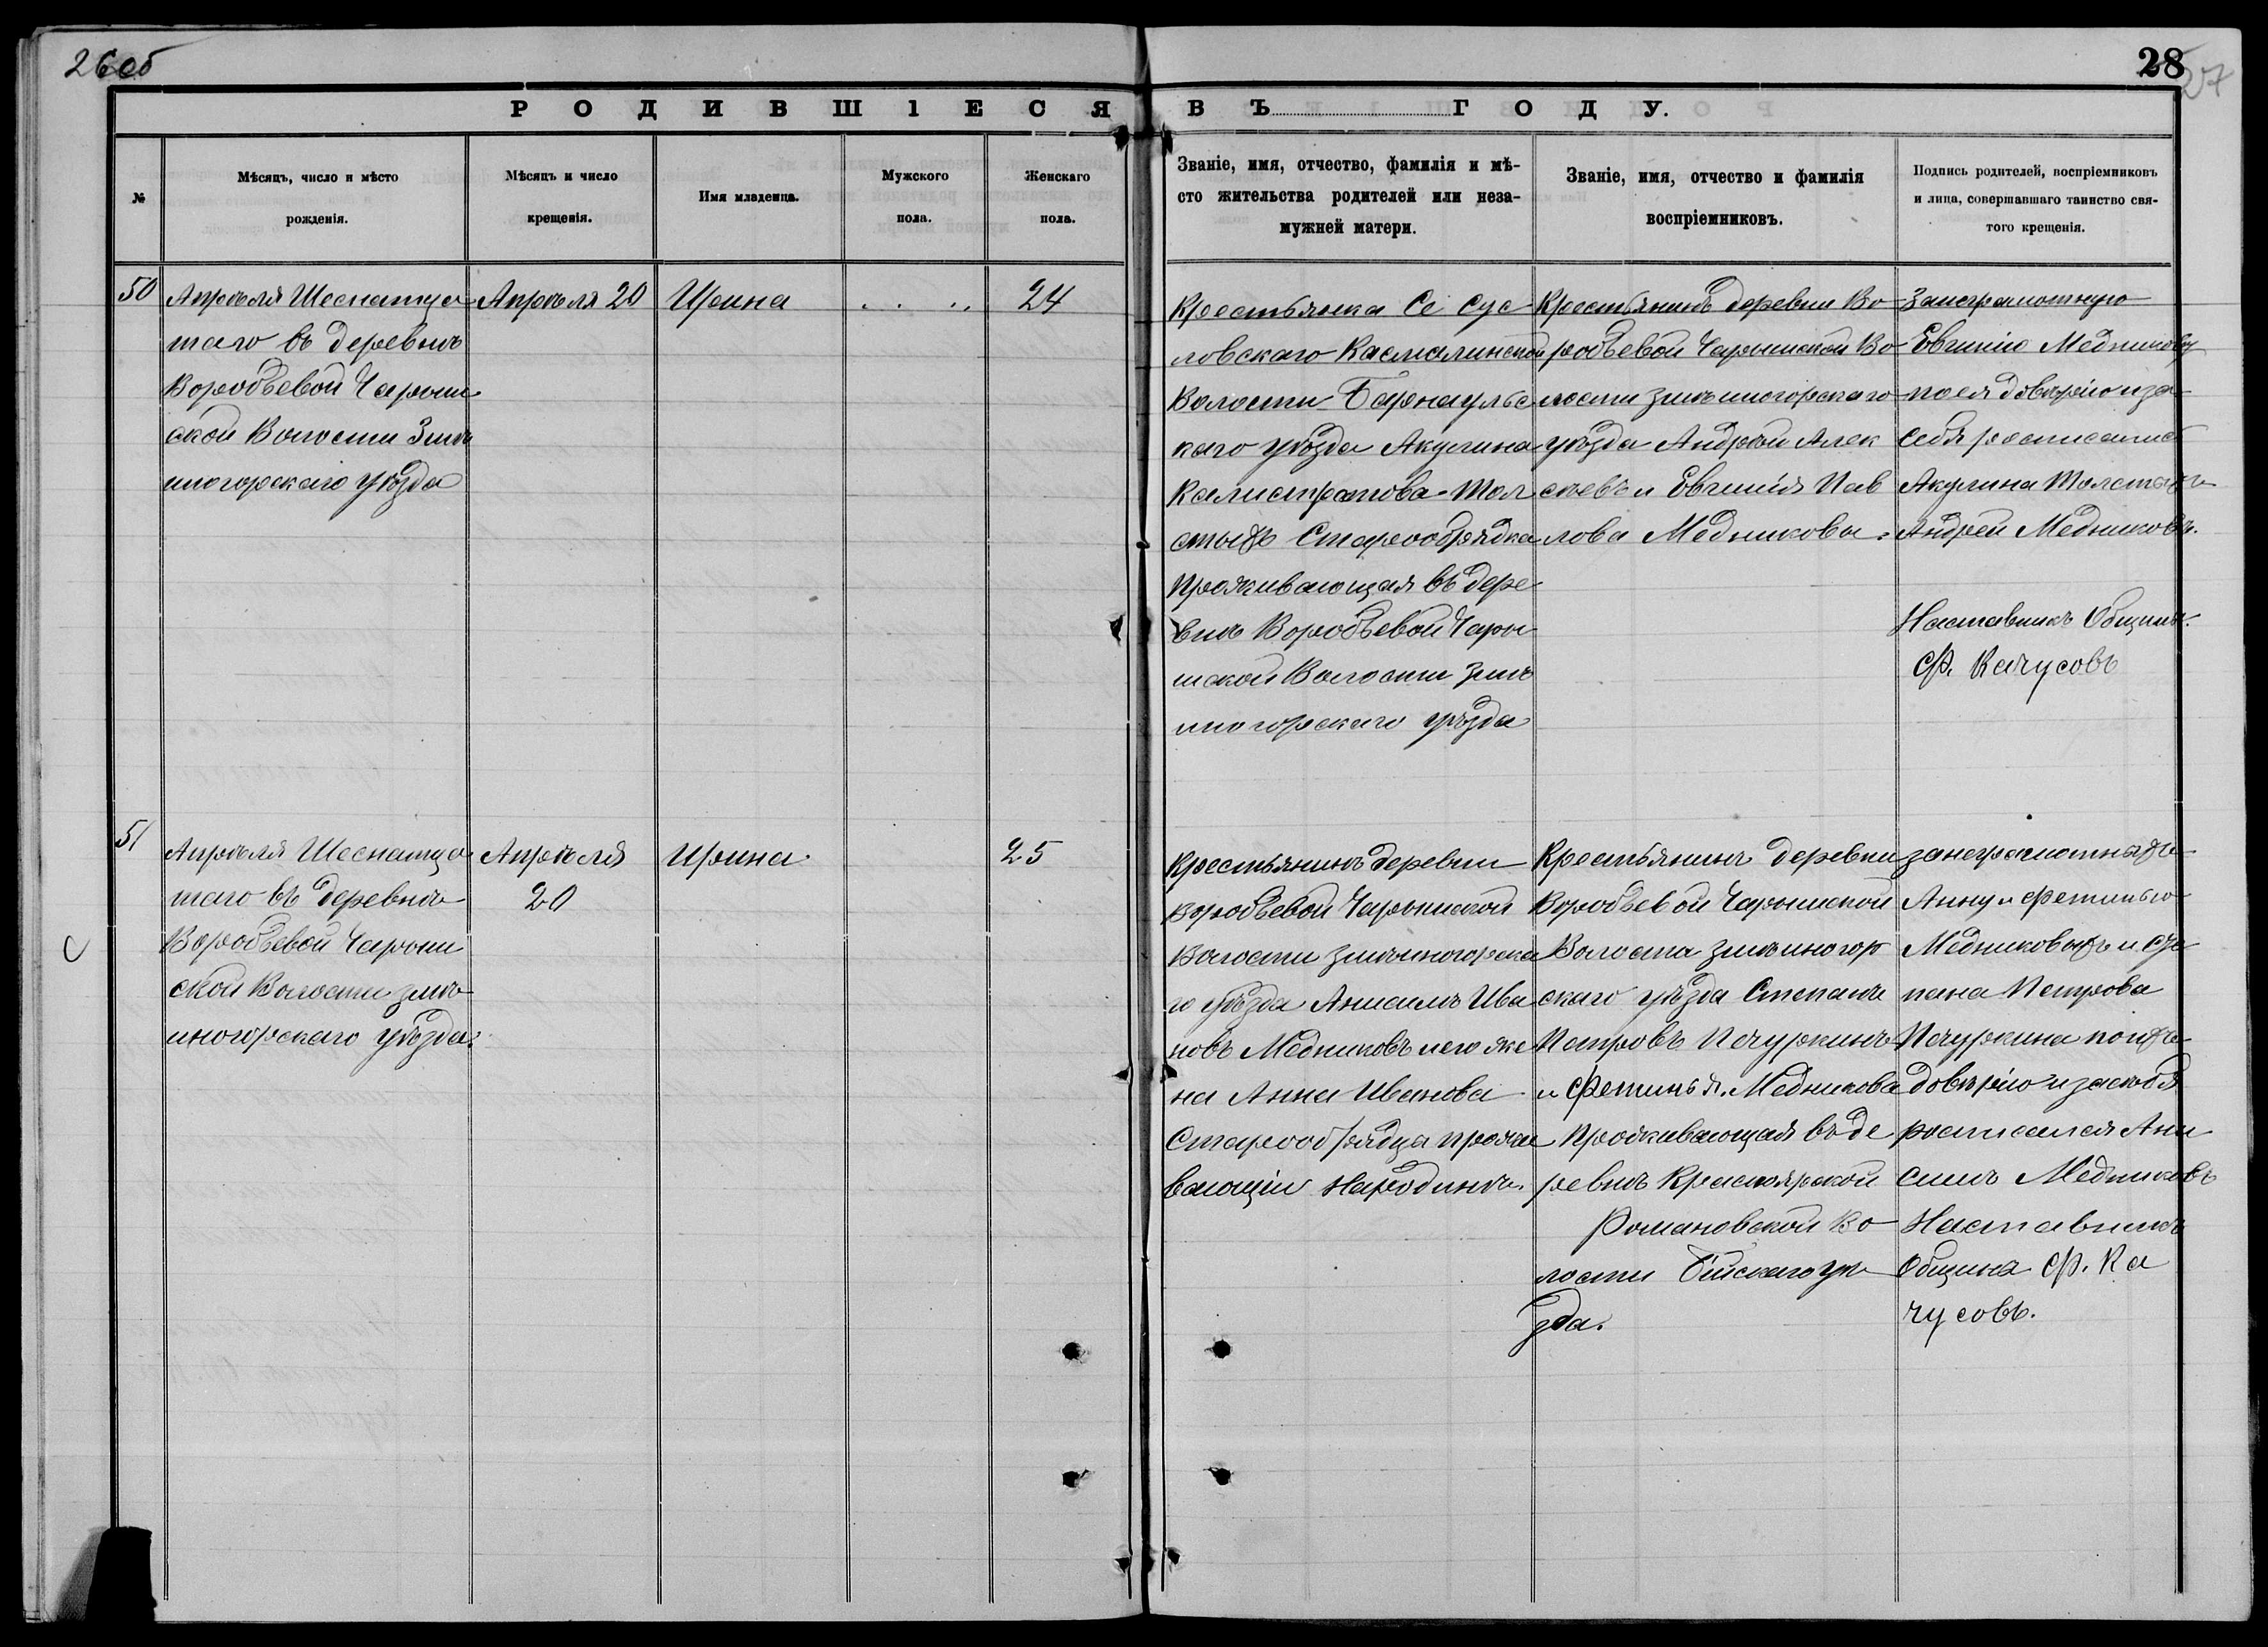 26об
28
27
РОДИВШІЕСЯ ВЪ ГОДУ.
№
Мѣсяцъ, число и мѣсто
рожденія.
Мѣсяцъ и число
крещенія.
Имя младенца.
Мужского
пола.
Женскаго
пола.
Званіе, имя, отчество, фамилія и мѣ-
сто жительства родителей или неза-
мужней матери.
Званіе, имя, отчество и фамилія
воспріемниковъ.
Подпись родителей, воспріемниковъ
и лица, совершавшаго таинство свя-
того крещенія.
50
Апрѣля Шеснатца
таго въ деревнѣ
Воробьевой Чарыш
ской Волости Змѣи
ногорскаго уѣзда
Апрѣля 20
Ирина
. . .
24
Крестьянка Се Сус
ловскаго Касмалинской
Волости Барнаульс
каго уѣзда Акулина
Калистратова Тол
стыхъ Старообрядка
Проживающая въ дере
внѣ Воробьевой Чары
шской Волости Змѣ
иногорскаго уѣзда
Крестьянинъ деревни Во
робьевой Чарышской Во
лости Змѣиногорскаго
уѣзда Андрѣй Алек
сѣевъ и Евгинія Пав
лова Медниковы.
Занеграмотную
Евгинію Медникову
поея довѣрію иза
себя росписались
Акулина Толстыхъ
Андрей Медниковъ.
Наставникъ Общины.
Ф. Качусовъ
51
Апрѣля Шеснатца
таго въ деревнѣ
Воробьевой Чарыш
ской Волости Змѣ
иногорскаго уѣзда.
Апрѣля
20
Ирина
25
Крестьянинъ деревни
Воробьевой Чарышской
Волости Змѣиногорска
го уѣзда Анисимъ Ива
новъ Медниковъ иего же
на Анна Иванова
Старообрядца прожи
вающіи Народинѣ.
Крестьянинъ деревни
Воробьевой Чарышской
Волости Змѣиногор
скаго уѣзда Степанъ
Петровъ Печуркинъ
и Фетинья Медникова
Проживающая въ де
ревнѣ Красноярской
Романовской Во
лости Бійскаго уѣ
зда.
занеграмотныхъ
Анну и Фетинью
Медниковыхъ и Сте
пана Петрова
Печуркина поихъ
довѣрію и засебя
росписался Ани
симъ Медниковъ
Наставникъ
Общины Ф. Ка
чусовъ.